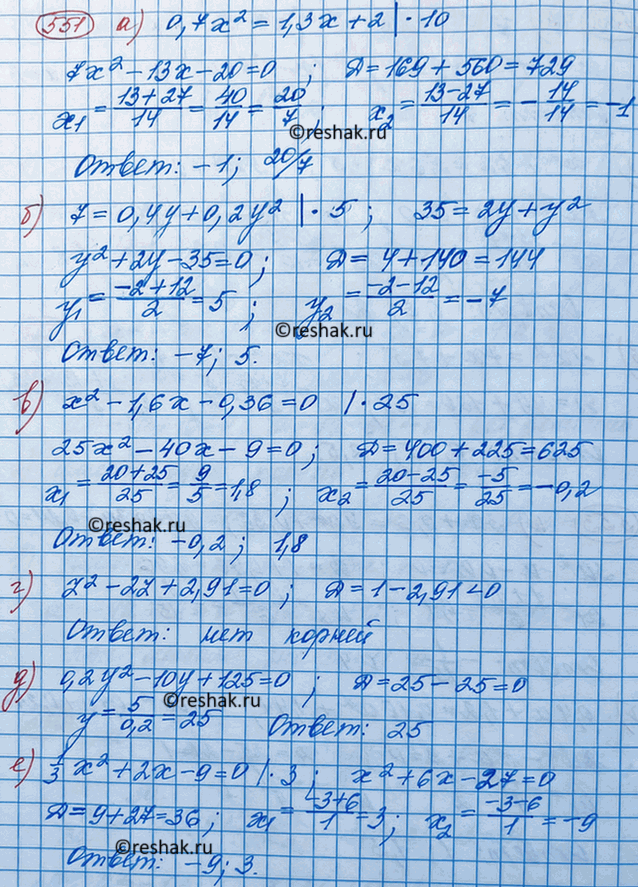 551 а) 0,7x² = 1,3x + 2 | · 10
7x² − 13x − 20 = 0 ; D = 169 + 560 = 729
x₁ = (13+27)/14 = 40/14 = 20/7 ; x₂ = (13−27)/14 = −14/14 = −1
©reshak.ru
Ответ: −1; 20/7
б) 7 = 0,4y + 0,2y² | · 5 ; 35 = 2y + y²
y² + 2y − 35 = 0 ; D = 4 + 140 = 144
y₁ = (−2+12)/2 = 5 ; y₂ = (−2−12)/2 = −7
©reshak.ru
Ответ: −7; 5.
в) x² − 1,6x − 0,36 = 0 | · 25
25x² − 40x − 9 = 0 ; D = 400 + 225 = 625
x₁ = (20+25)/25 = 9/5 = 1,8 ; x₂ = (20−25)/25 = −5/25 = −0,2
©reshak.ru
Ответ: −0,2 ; 1,8
г) z² − 2z + 2,91 = 0 ; D = 1 − 2,91 < 0
Ответ: нет корней
д) 0,2y² − 10y + 125 = 0 ; D = 25 − 25 = 0
©reshak.ru
y = 5/0,2 = 25 Ответ: 25
е) 1/3 x² + 2x − 9 = 0 | · 3 ; x² + 6x − 27 = 0
D = 9 + 27 = 36 ; x₁ = (−3+6)/1 = 3 ; x₂ = (−3−6)/1 = −9
©reshak.ru
Ответ: −9; 3.